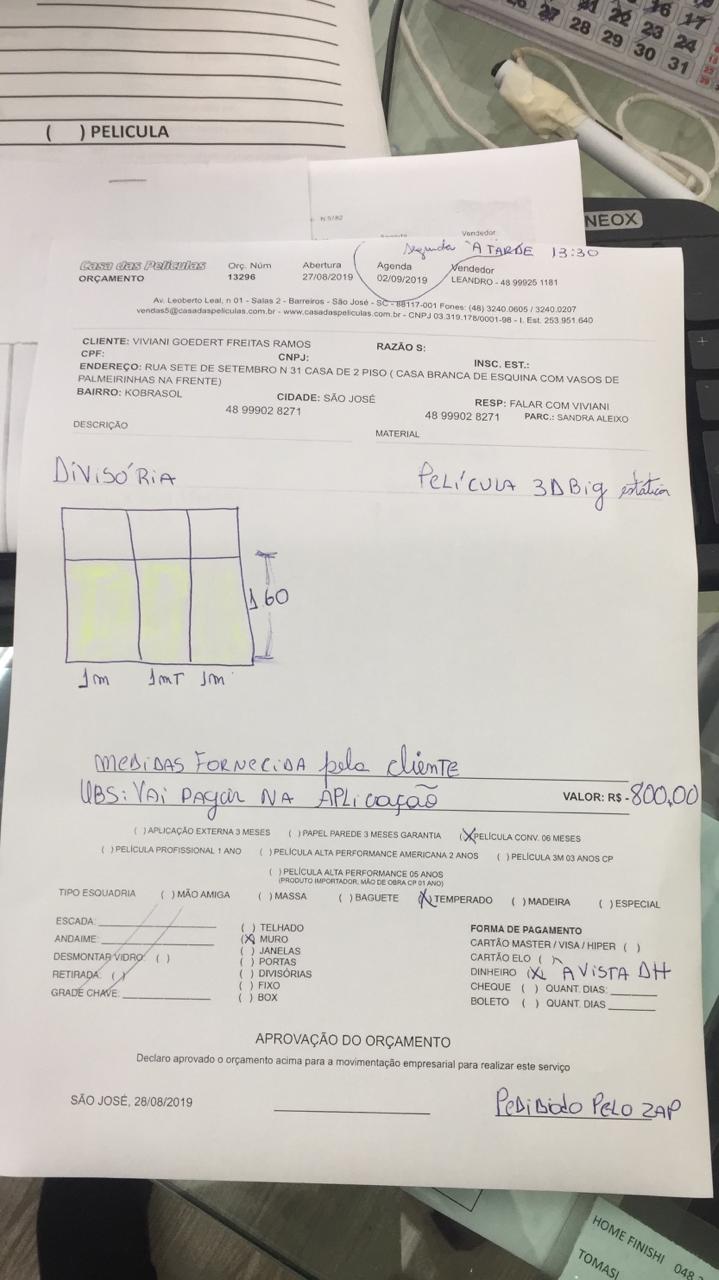 26 27 21 22 16 17
28 29 23 24
30 31
( ) PELICULA
NEOX
Vendedor
Segunda A TARDE 13:30
Casa das Películas
ORÇAMENTO
Orç. Núm
13296
Abertura
27/08/2019
Agenda
02/09/2019
Vendedor
LEANDRO - 48 99925 1181
Av. Leoberto Leal, n 01 - Salas 2 - Barreiros - São José - SC - 88117-001 Fones: (48) 3240.0605 / 3240.0207
vendas5@casadaspeliculas.com.br - www.casadaspeliculas.com.br - CNPJ 03.319.178/0001-98 - I. Est. 253.951.640
CLIENTE: VIVIANI GOEDERT FREITAS RAMOS RAZÃO S:
CPF: CNPJ: INSC. EST.:
ENDEREÇO: RUA SETE DE SETEMBRO N 31 CASA DE 2 PISO ( CASA BRANCA DE ESQUINA COM VASOS DE
PALMEIRINHAS NA FRENTE)
BAIRRO: KOBRASOL CIDADE: SÃO JOSÉ RESP: FALAR COM VIVIANI
48 99902 8271 48 99902 8271 PARC.: SANDRA ALEIXO
DESCRIÇÃO MATERIAL
DIVISÓRIA PELÍCULA 3D Big estática
1,60
1m 1mT 1m
MEDIDAS FORNECIDA pelo cliente
OBS: VAI PAGAR NA APLICAÇÃO VALOR: R$ - 800,00
( ) APLICAÇÃO EXTERNA 3 MESES ( ) PAPEL PAREDE 3 MESES GARANTIA (X) PELÍCULA CONV. 06 MESES
( ) PELÍCULA PROFISSIONAL 1 ANO ( ) PELÍCULA ALTA PERFORMANCE AMERICANA 2 ANOS ( ) PELÍCULA 3M 03 ANOS CP
( ) PELÍCULA ALTA PERFORMANCE 05 ANOS
(PRODUTO IMPORTADOR, MÃO DE OBRA CP 01 ANO)
TIPO ESQUADRIA ( ) MÃO AMIGA ( ) MASSA ( ) BAGUETE (X) TEMPERADO ( ) MADEIRA ( ) ESPECIAL
ESCADA:
ANDAIME:
DESMONTAR VIDRO: ( )
RETIRADA: ( )
GRADE CHAVE:
( ) TELHADO
(X) MURO
( ) JANELAS
( ) PORTAS
( ) DIVISÓRIAS
( ) FIXO
( ) BOX
FORMA DE PAGAMENTO
CARTÃO MASTER / VISA / HIPER ( )
CARTÃO ELO ( )
DINHEIRO (X) A VISTA DH
CHEQUE ( ) QUANT. DIAS:
BOLETO ( ) QUANT. DIAS
APROVAÇÃO DO ORÇAMENTO
Declaro aprovado o orçamento acima para a movimentação empresarial para realizar este serviço
SÃO JOSÉ, 28/08/2019 PEDIDIDO PELO ZAP
HOME FINISHI 048
TOMASI